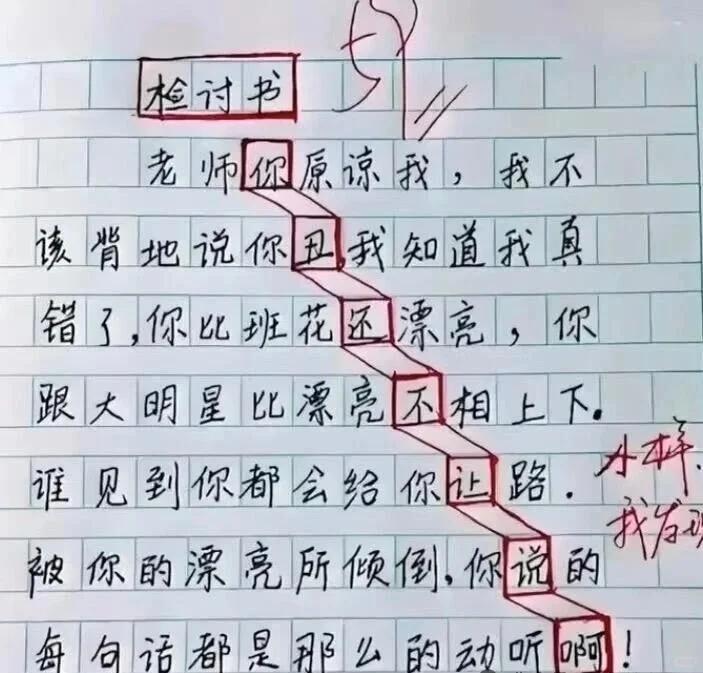 检讨书
59
老师你原谅我，我不
该背地说你丑，我知道我真
错了，你比班花还漂亮，你
跟大明星比漂亮不相上下。
谁见到你都会给你让路.
小样.
我发现
被你的漂亮所倾倒，你说的
每句话都是那么的动听啊！